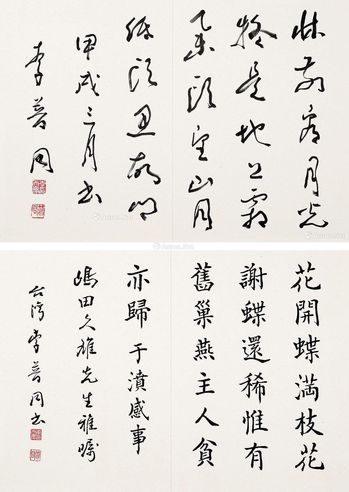 牀前看月光
疑是地上霜
舉頭望山月
低頭思故鄉
甲戌三月書
李普同
花開蝶滿枝花
謝蝶還稀惟有
舊巢燕主人貧
亦歸 于濆感事
嶋田久雄先生雅囑
台灣李普同書